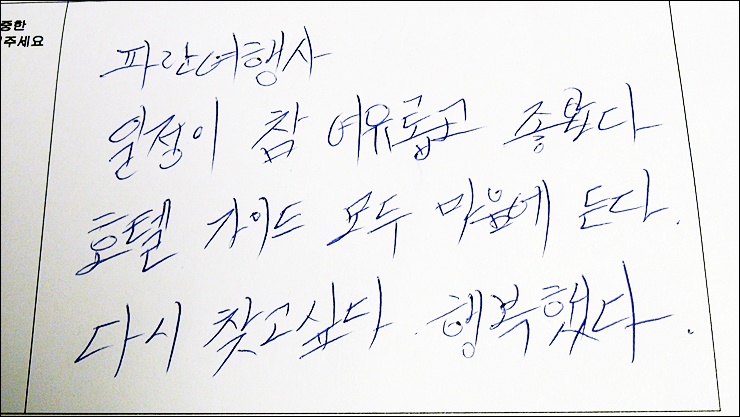 중한
주세요
파란여행사
일정이 참 여유롭고 좋았다
호텔 가이드 모두 마음에 든다.
다시 찾고싶다. 행복했다.